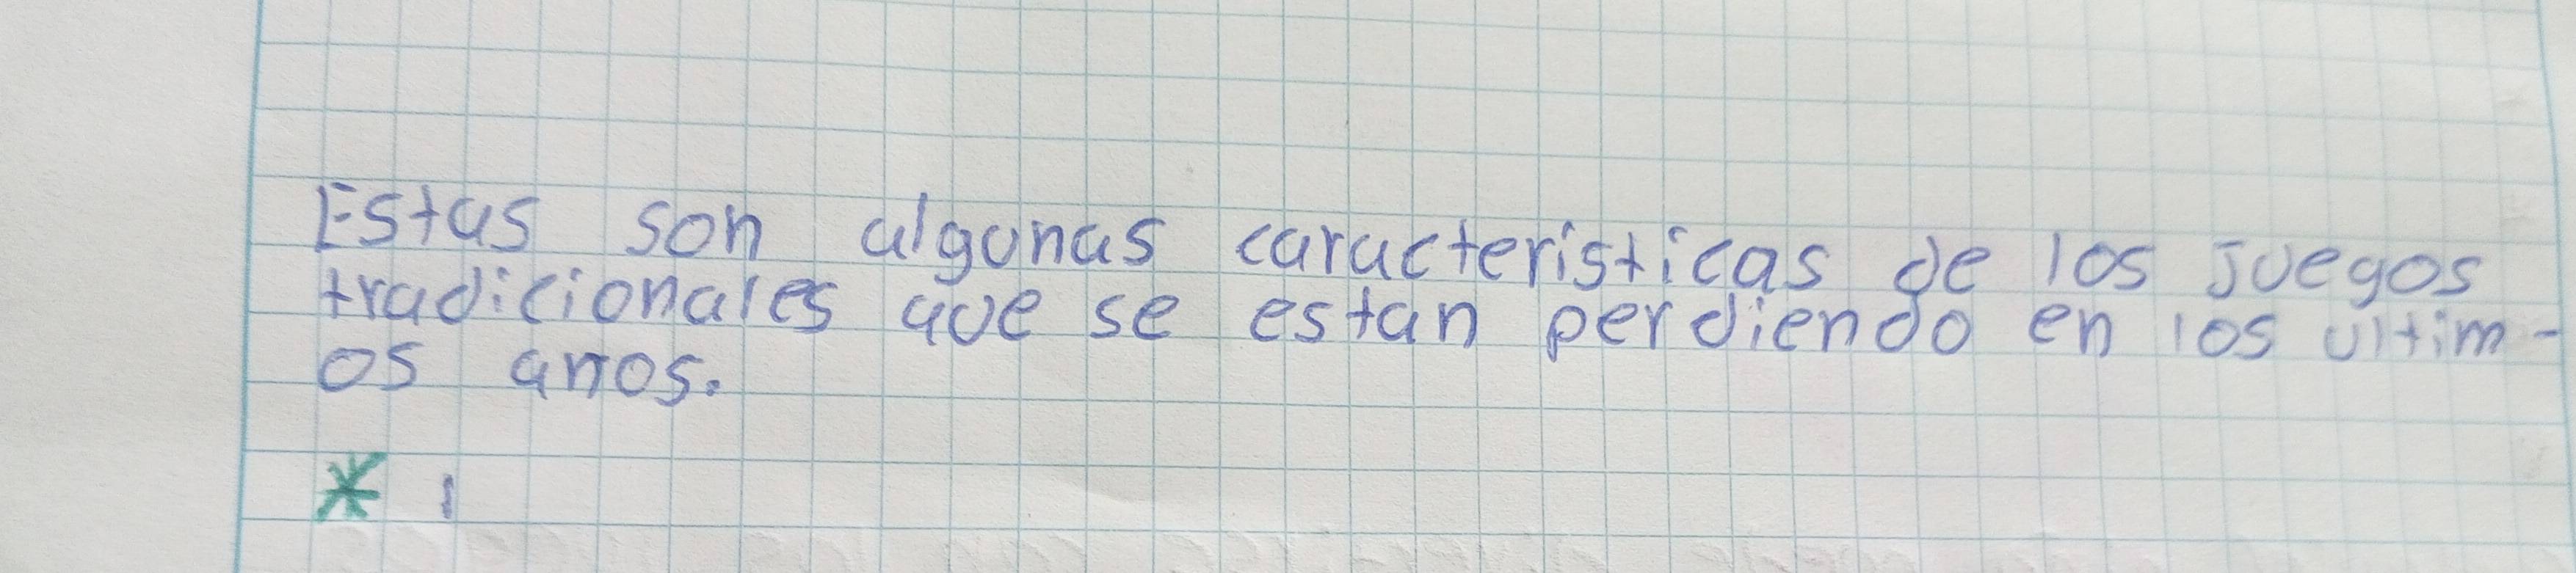 Estas son algunas caracteristicas de los juegos
tradicionales que se estan perdiendo en los ultim-
os anos.
* 1